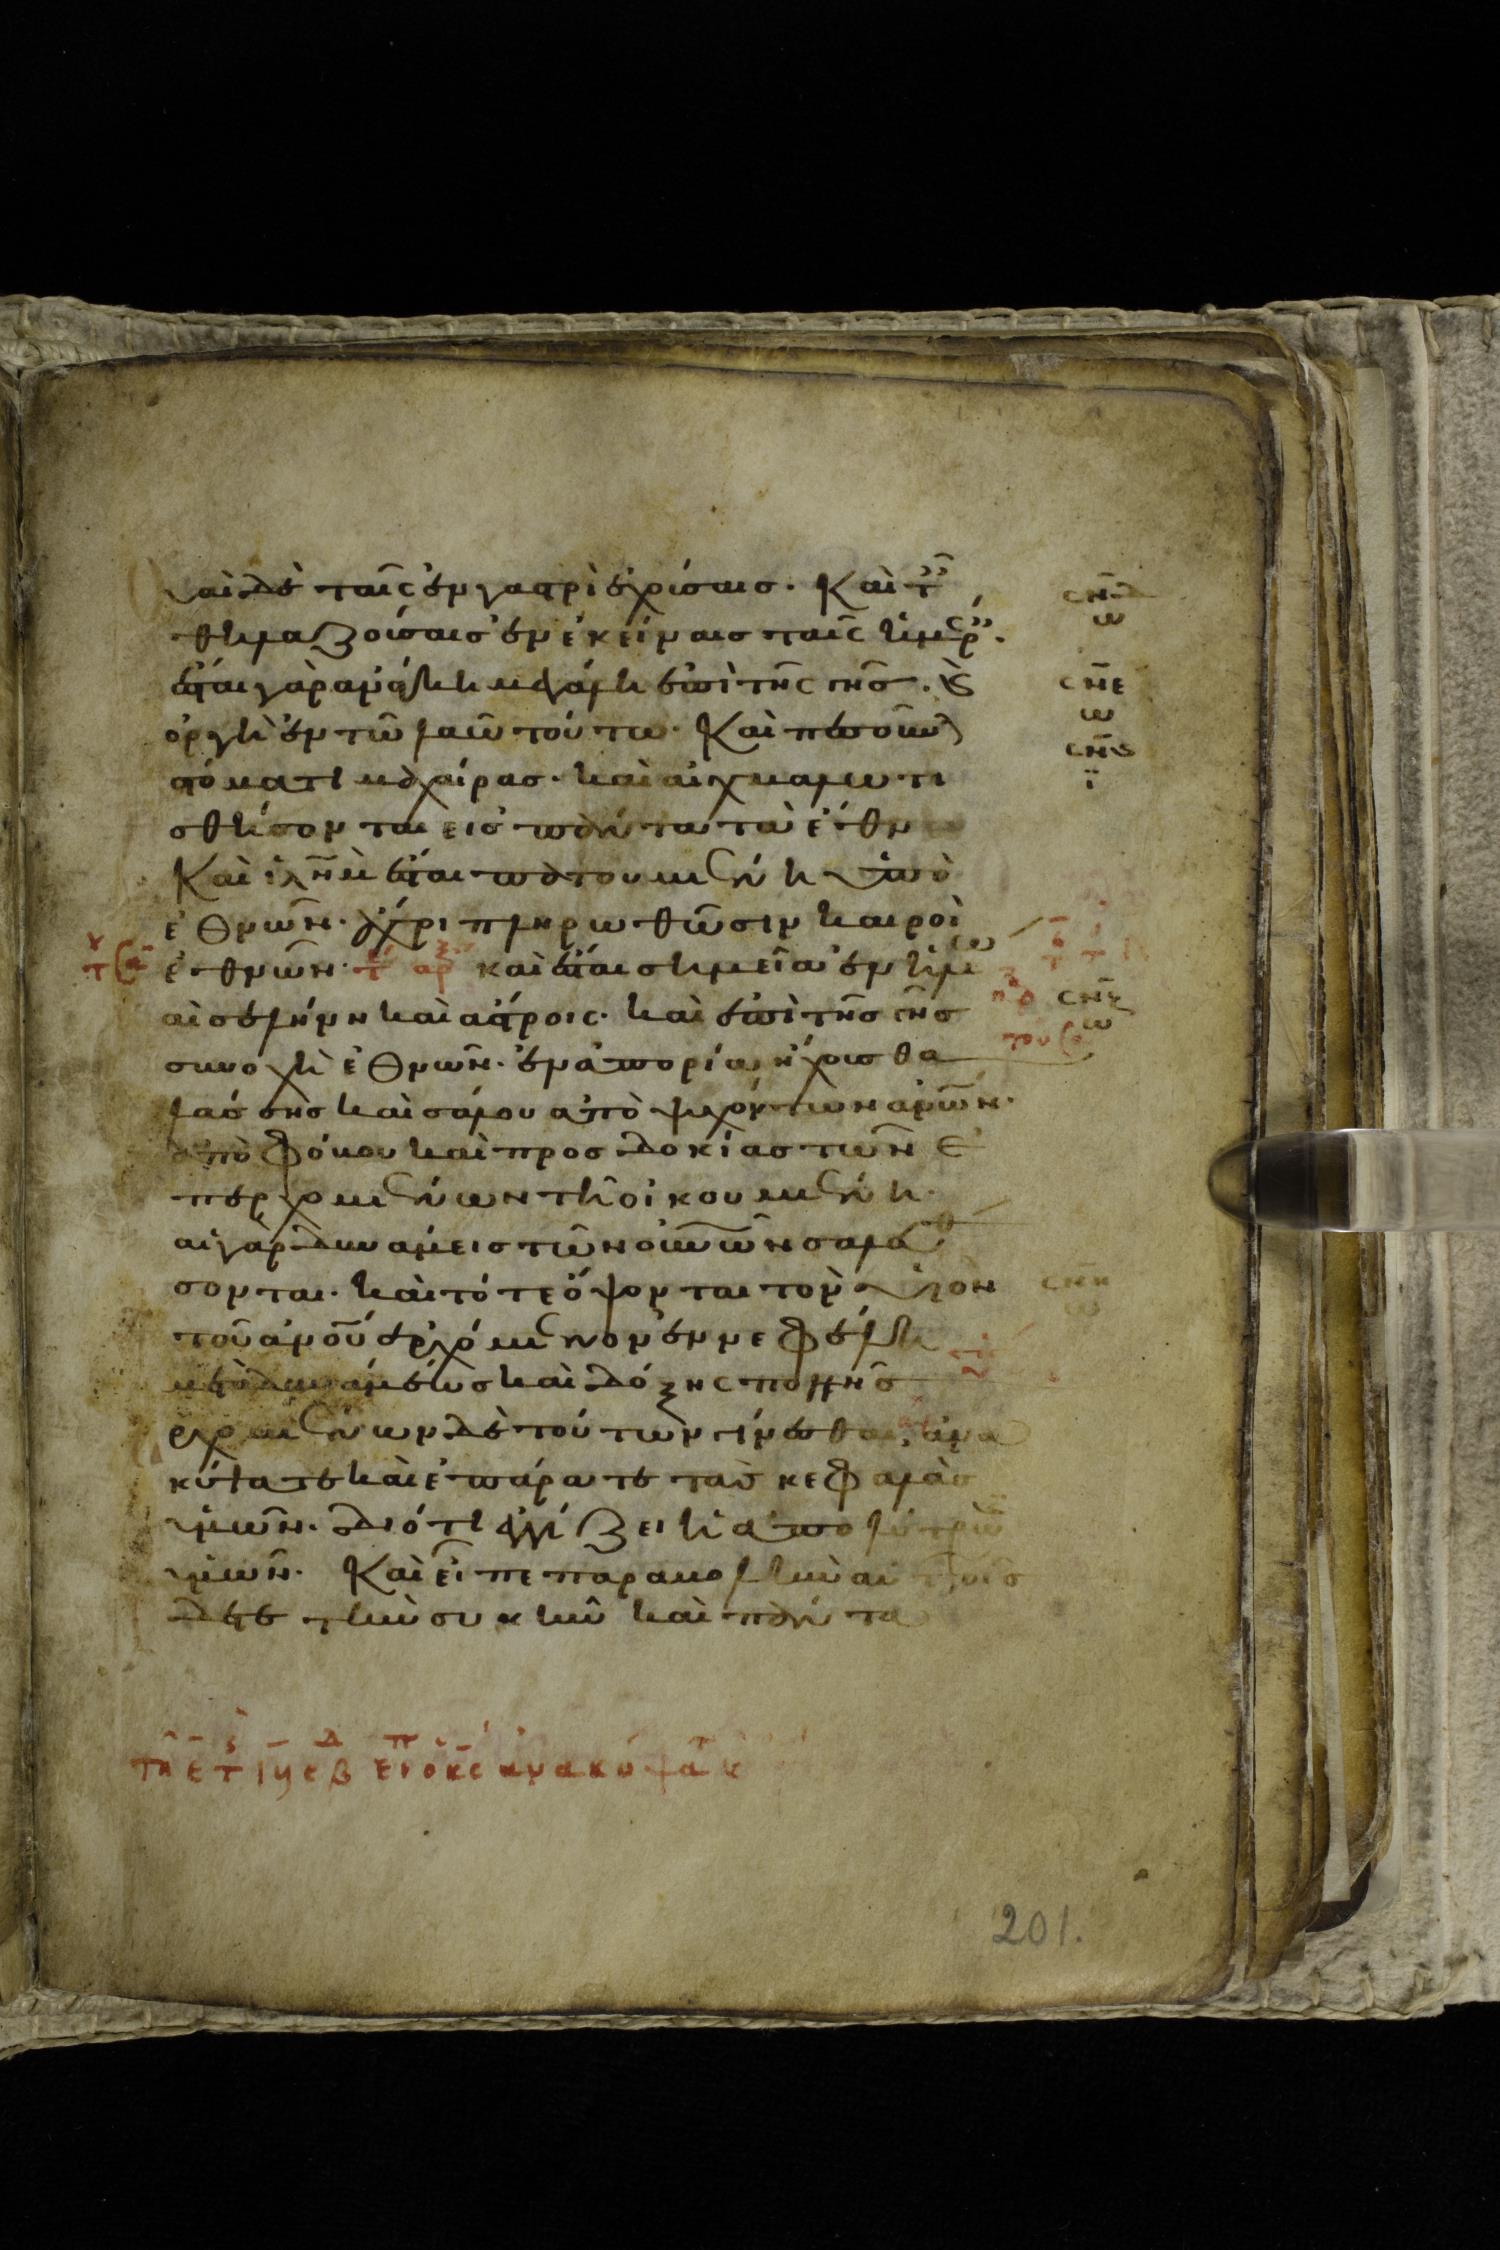 οὐαὶ δὲ ταῖς ἐν γαστρὶ ἐχούσαις. Καὶ τ
θηλαζούσαισ ἐν ἐκείναισ ταῖς ἡμέρ.
ἔσται γὰρ ἀνάγκη μεγάλη ἐπὶ τῆς γῆσ. κ
ὀργὴ ἐν τῶ λαῶ τούτω. Καὶ πεσοῦν
στόματι μαχαίρασ. καὶ αἰχμαλωτι
σθήσονται εισ πάντα τὰ ἔθνη
Καὶ ἰλημ ἔσται πατουμένη ὑπὸ
ἐθνῶν. ἄχρι πληρωθῶσιν καιροὶ
ἐθνῶν. καὶ ἔσται σημεῖα ἐν ἡλίω
καὶ σελήνη καὶ ἄστροις. καὶ ἐπὶ τῆσ γῆσ
συνοχὴ ἐθνῶν. ἐν ἀπορία ἤχουσ θα
λάσσησ καὶ σάλου ἀποψυχόντων ανων.
ἀπὸ φόβου καὶ προσδοκίασ τῶν ἐ
περχομένων τῆ οἰκουμένη.
αἱ γὰρ δυνάμεισ τῶν οὐνῶν σαλευθή
σονται. καὶ τότε ὄψονται τὸν υἱὸν
τοῦ ανου ἐρχόμενον ἐν νεφέλη
μετὰ δυνάμεωσ καὶ δόξης πολλῆσ
ἀρχομένων δὲ τούτων γίνεσθαι, ἀνα
κύψατε καὶ ἐπάρατε τὰσ κεφαλὰσ
ὑμῶν. διότι ἐγγίζει ἡ ἀπολύτρωσ
ὑμῶν. Καὶ εἶπε παραβολὴν αὐτοῖσ
ἴδετε τὴν συκῆν καὶ πάντα
201.